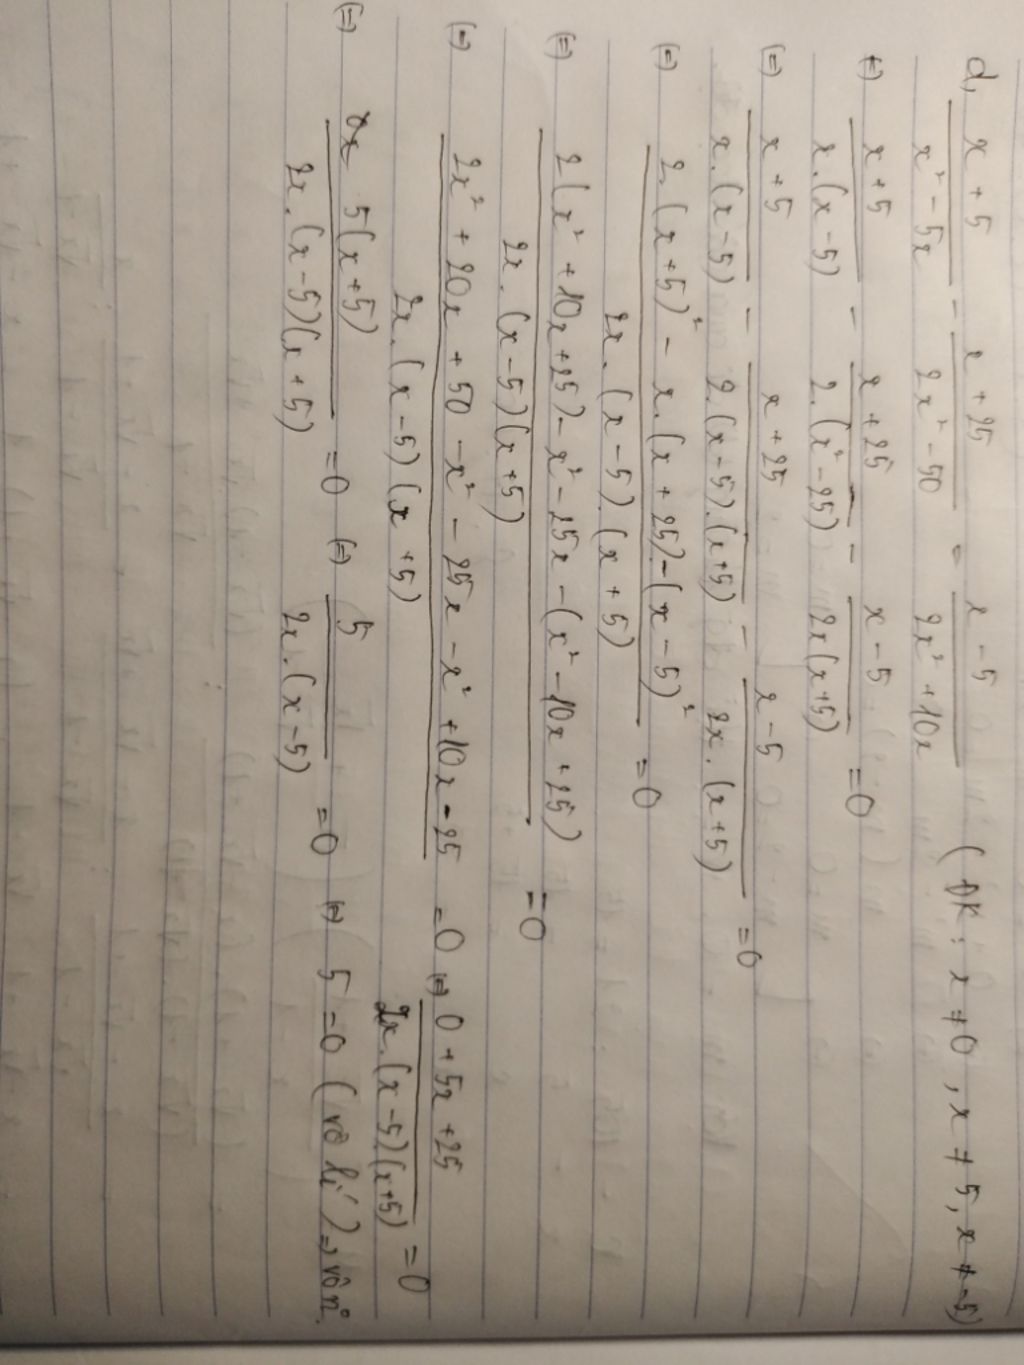 d, (x + 5)/(x² - 5x) - (x + 25)/(2x² - 50) = (x - 5)/(2x² + 10x) (ĐK: x ≠ 0, x ≠ 5, x ≠ -5)
(=) (x + 5)/(x.(x - 5)) - (x + 25)/(2.(x² - 25)) - (x - 5)/(2x(x + 5)) = 0
(=) (x + 5)/(x.(x - 5)) - (x + 25)/(2.(x - 5).(x + 5)) - (x - 5)/(2x.(x + 5)) = 0
(=) (2.(x + 5)² - x.(x + 25) - (x - 5)²)/(2x.(x - 5).(x + 5)) = 0
(=) (2(x² + 10x + 25) - x² - 25x - (x² - 10x + 25))/(2x.(x - 5)(x + 5)) = 0
(=) (2x² + 20x + 50 - x² - 25x - x² + 10x - 25)/(2x.(x - 5)(x + 5)) = 0 (=) (0 + 5x + 25)/(2x.(x - 5)(x + 5)) = 0
(=) (5(x + 5))/(2x.(x - 5)(x + 5)) = 0 (=) 5/(2x.(x - 5)) = 0 (=) 5 = 0 (vô lí) => vô n⁰.